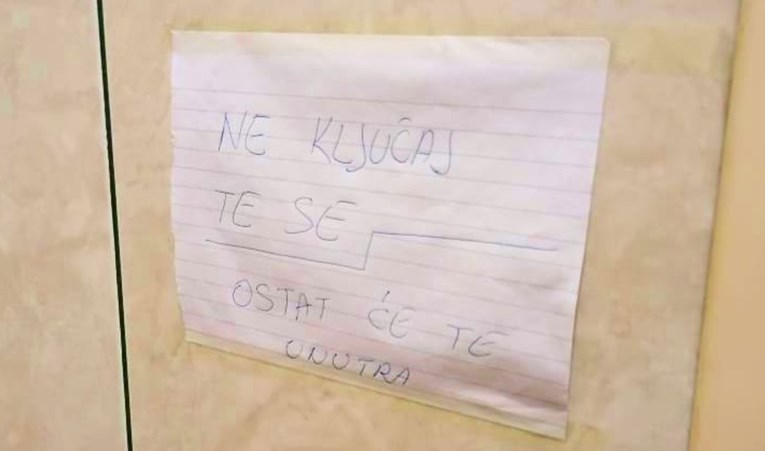 NE KLJUČAJ
TE SE
OSTAT ĆE TE
UNUTRA